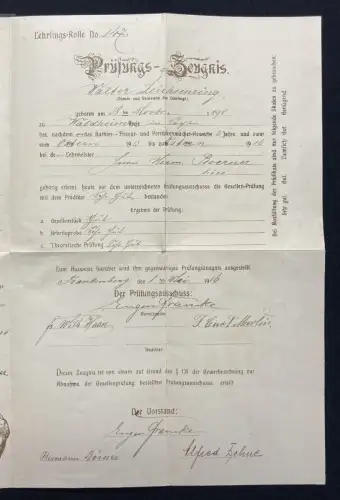 Lehrlings-Rolle No.
Prüfungs-Zeugnis.
Walter
(Namen und Geburtsort des Lehrlings)
geboren am
zu
hat nachdem er das Barbier-, Friseur- und Perückenmacher-Gewerbe 3 Jahre und zwar
von Ostern 1913 bis Ostern 1916
bei d. Lehrmeister
Herrn Herm. Boerner
hier
gehörig erlernt heute vor dem unterzeichneten Prüfungsausschusse die Gesellen-Prüfung
mit dem Prädikat Sehr Gut bestanden.
Ergebnis der Prüfung:
a. Gesellenstück Gut
b. Arbeitsprobe Sehr Gut
c. Theoretische Prüfung Sehr Gut
Zum Ausweise hierüber wird ihm gegenwärtiges Prüfungszeugnis ausgestellt.
Frankenberg den 1. Mai 1916
Der Prüfungsausschuss:
Eugen Francke
Vorsitzender
Beisitzer
Dieses Zeugnis ist von einem auf Grund des § 131 der Gewerbeordnung zur
Abnahme der Gesellenprüfung bestellten Prüfungsausschusse erteilt
Der Vorstand:
Eugen Francke
Hermann Börner Alfred
Bei Ausfüllung der Prädikate sind nur folgende Stufen zu gebrauchen:
Sehr gut. Gut. Ziemlich Gut. Genügend